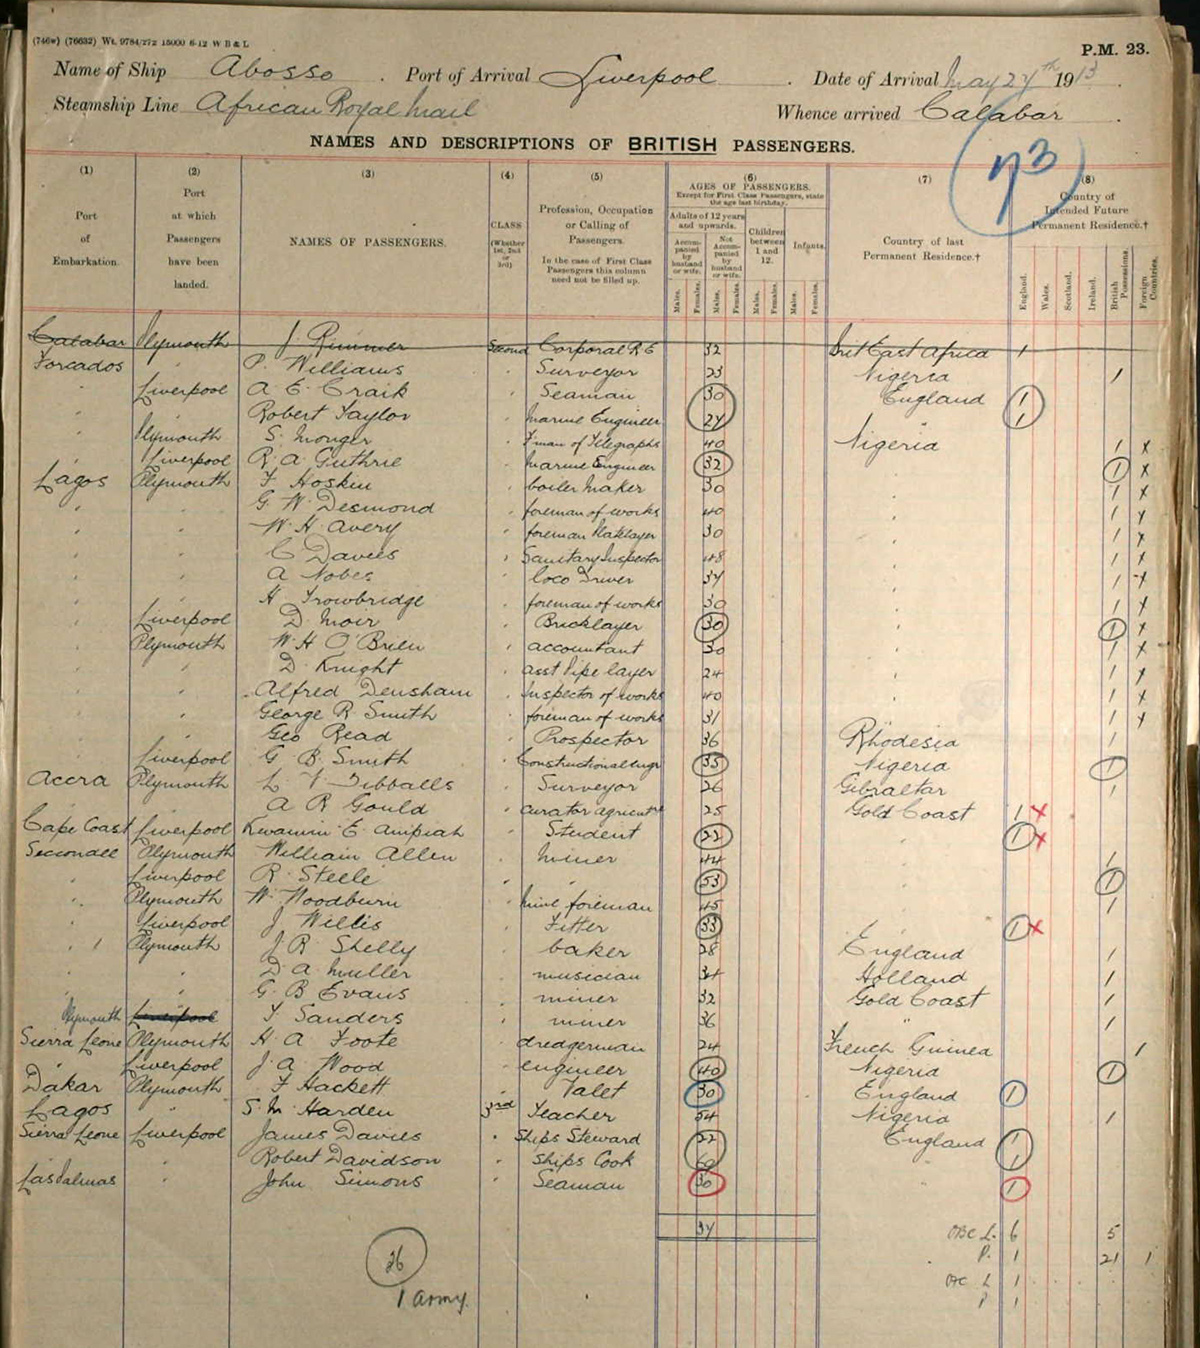 (746w) (76632) Wt. 9784/272 15000 6-12 W B & L
P.M. 23.
Name of Ship Abosso . Port of Arrival Liverpool . Date of Arrival May 27th 1913
Steamship Line African Royal Mail Whence arrived Calabar .
73
NAMES AND DESCRIPTIONS OF BRITISH PASSENGERS.
(1) Port of Embarkation.
(2) Port at which Passengers have been landed.
(3) NAMES OF PASSENGERS.
(4) CLASS (Whether 1st, 2nd or 3rd)
(5) Profession, Occupation or Calling of Passengers. In the case of First Class Passengers this column need not be filled up.
(6) AGES OF PASSENGERS. Except for First Class Passengers, state the age last birthday.
Adults of 12 years and upwards. Children between 1 and 12. Infants.
Accompanied by husband or wife. Not Accompanied by husband or wife.
Males. Females. Males. Females. Males. Females. Males. Females.
(7) Country of last Permanent Residence.†
(8) Country of Intended Future Permanent Residence.†
England. Wales. Scotland. Ireland. British Possessions. Foreign Countries.
Calabar Plymouth J. Rimmer Second Corporal R E 32 Brit East Africa 1
Forcados " P. Williams " Surveyor 23 Nigeria 1
" Liverpool A E Craik " Seaman 30 England 1
" " Robert Taylor " Marine Engineer 27 " 1
" Plymouth S. Monger " F'man of Telegraphs 40 Nigeria 1 x
" Liverpool R. A Guthrie " Marine Engineer 32 " 1 x
Lagos Plymouth F. Hoskin " boiler maker 30 " 1 x
" " G. W. Desmond " foreman of works 40 " 1 x
" " W. H. Avery " foreman Platelayer 30 " 1 x
" " C Davies " Sanitary Inspector 48 " 1 x
" " A Nobes " loco Driver 34 " 1 x
" " H Trowbridge " foreman of works 30 " 1 x
" Liverpool D. Moir " Bricklayer 30 " 1 x
" Plymouth W. H O'Brien " accountant 30 " 1 x
" " D. Knight " asst Pipe layer 24 " 1 x
" " Alfred Densham " Inspector of works 40 " 1 x
" " George R. Smith " foreman of works 31 " 1 x
" " Geo Read " Prospector 36 Rhodesia 1
" Liverpool G B. Smith " Constructional Engr 35 Nigeria 1
Accra Plymouth L V Tibballs " Surveyor 26 Gibraltar 1
" " A R Gould " curator 25 Gold Coast 1 x
Cape Coast Liverpool Kwamin E. Ampiah " Student 22 " 1 x
Seccondee Plymouth William Allen " miner 44 " 1
" Liverpool R. Steele " " 53 " 1
" Plymouth W. Woodburn " mine foreman 45 " 1
" Liverpool J Willis " Fitter 33 " 1 x
" Plymouth J. R. Shelly " baker 28 England 1
" " D. A. Muller " musician 34 Holland 1
" " G. B Evans " miner 32 Gold Coast 1
Plymouth Liverpool T Sanders " miner 36 " 1
Sierra Leone Plymouth H. A Foote " dredgerman 24 French Guinea 1
" Liverpool J. A. Wood " engineer 40 Nigeria 1
Dakar Plymouth F Hackett " Valet 30 England 1
Lagos " S. M. Harden 3rd Teacher 54 Nigeria 1
Sierra Leone Liverpool James Davies " Ships Steward 22 England 1
" " Robert Davidson " Ships Cook 60 " 1
Las Palmas " John Simons " Seaman 30 " 1
37
OBC L. 6 5
P. 1 21 1
OAC L 1
P 1
26
1 army.